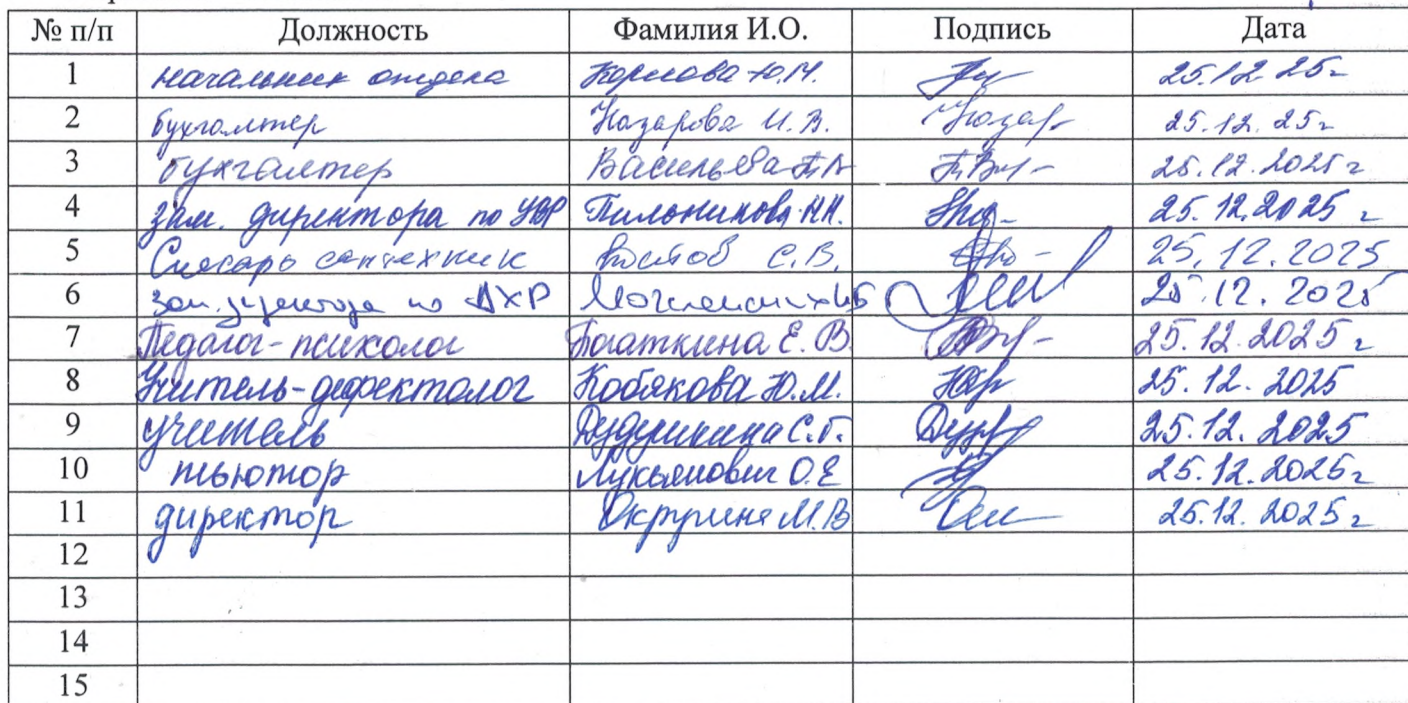 № п/п Должность Фамилия И.О. Подпись Дата
1 начальник отдела Ю.М. 25.12 25г
2 бухгалтер Назарова И.В. Назар 25.12.25г
3 бухгалтер Васильева 25.12.2025г
4 зам. директора по УВР Пильникова Н.Н. 25.12.2025г
5 Слесарь сантехник С.В. 25.12.2025
6 зам. директора по АХР 25.12.2025
7 Педагог-психолог Богаткина Е.В. 25.12.2025г
8 Учитель-дефектолог Кобякова Ю.М. 25.12.2025
9 учитель С.Г. 25.12.2025
10 тьютор Лукьянович О.Е 25.12.2025г
11 директор М.В 25.12.2025г
12
13
14
15